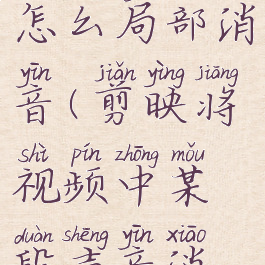 怎么局部消
yīn jiǎn yìng jiāng
音(剪映将
shì pín zhōng mǒu
视频中某
duàn shēng yīn xiāo
段声音消